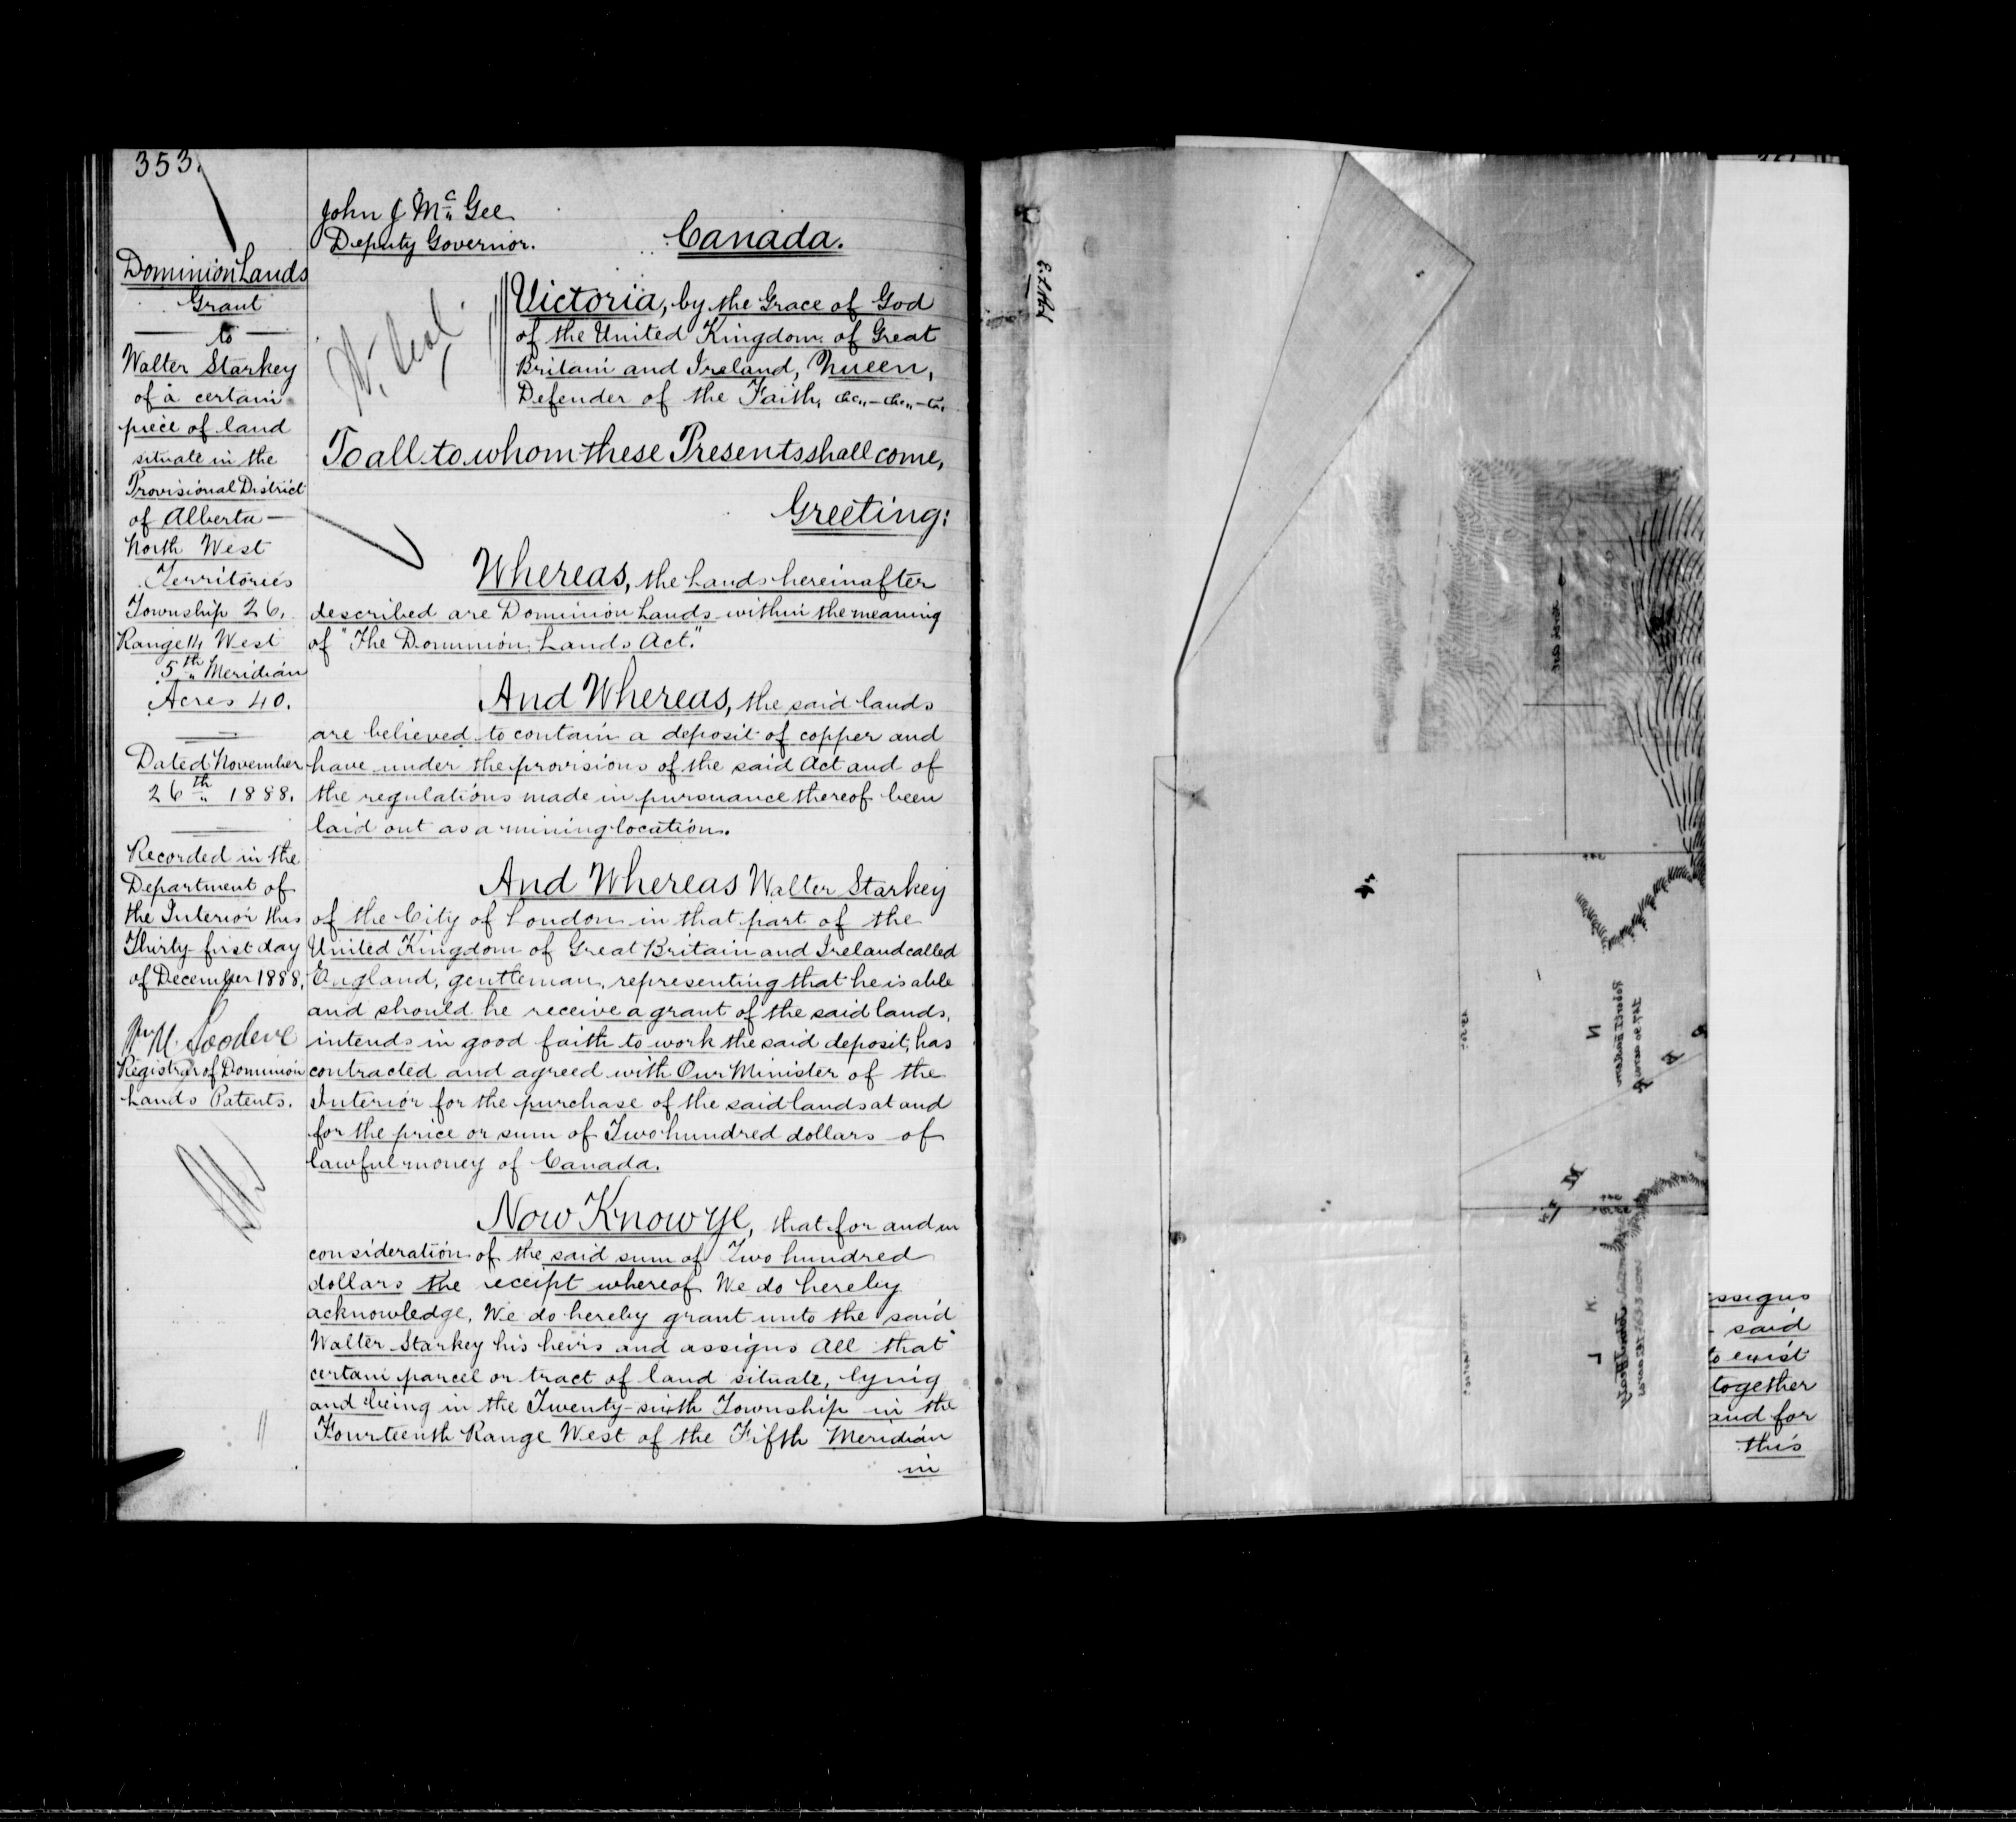 353.
Dominion Lands
Grant
to
Walter Starkey
of a certain
piece of land
situate in the
Provisional District
of Alberta —
North West
Territories
Township 26,
Range 14 West
5th Meridian
Acres 40.
Dated November
26th 1888.
Recorded in the
Department of
the Interior this
Thirty first day
of December 1888.
Registrar of Dominion
Lands Patents.
John J. McGee
Deputy Governor.
Canada.
Victoria, by the Grace of God
of the United Kingdom of Great
Britain and Ireland, Queen,
Defender of the Faith, &c., — &c., — &c.
To all to whom these Presents shall come,
Greeting:
Whereas, the Lands hereinafter
described are Dominion Lands within the meaning
of "The Dominion Lands Act."
And Whereas, the said lands
are believed to contain a deposit of copper and
have under the provisions of the said Act and of
the regulations made in pursuance thereof been
laid out as a mining location.
And Whereas Walter Starkey
of the City of London in that part of the
United Kingdom of Great Britain and Ireland called
England, gentleman, representing that he is able
and should he receive a grant of the said lands,
intends in good faith to work the said deposit, has
contracted and agreed with Our Minister of the
Interior for the purchase of the said lands at and
for the price or sum of Two hundred dollars of
lawful money of Canada.
Now Know Ye, that for and in
consideration of the said sum of Two hundred
dollars the receipt whereof We do hereby
acknowledge, We do hereby grant unto the said
Walter Starkey his heirs and assigns All that
certain parcel or tract of land situate, lying
and being in the Twenty-sixth Township in the
Fourteenth Range West of the Fifth Meridian
in
N
K.
L
assigns
said
to exist
together
and for
this